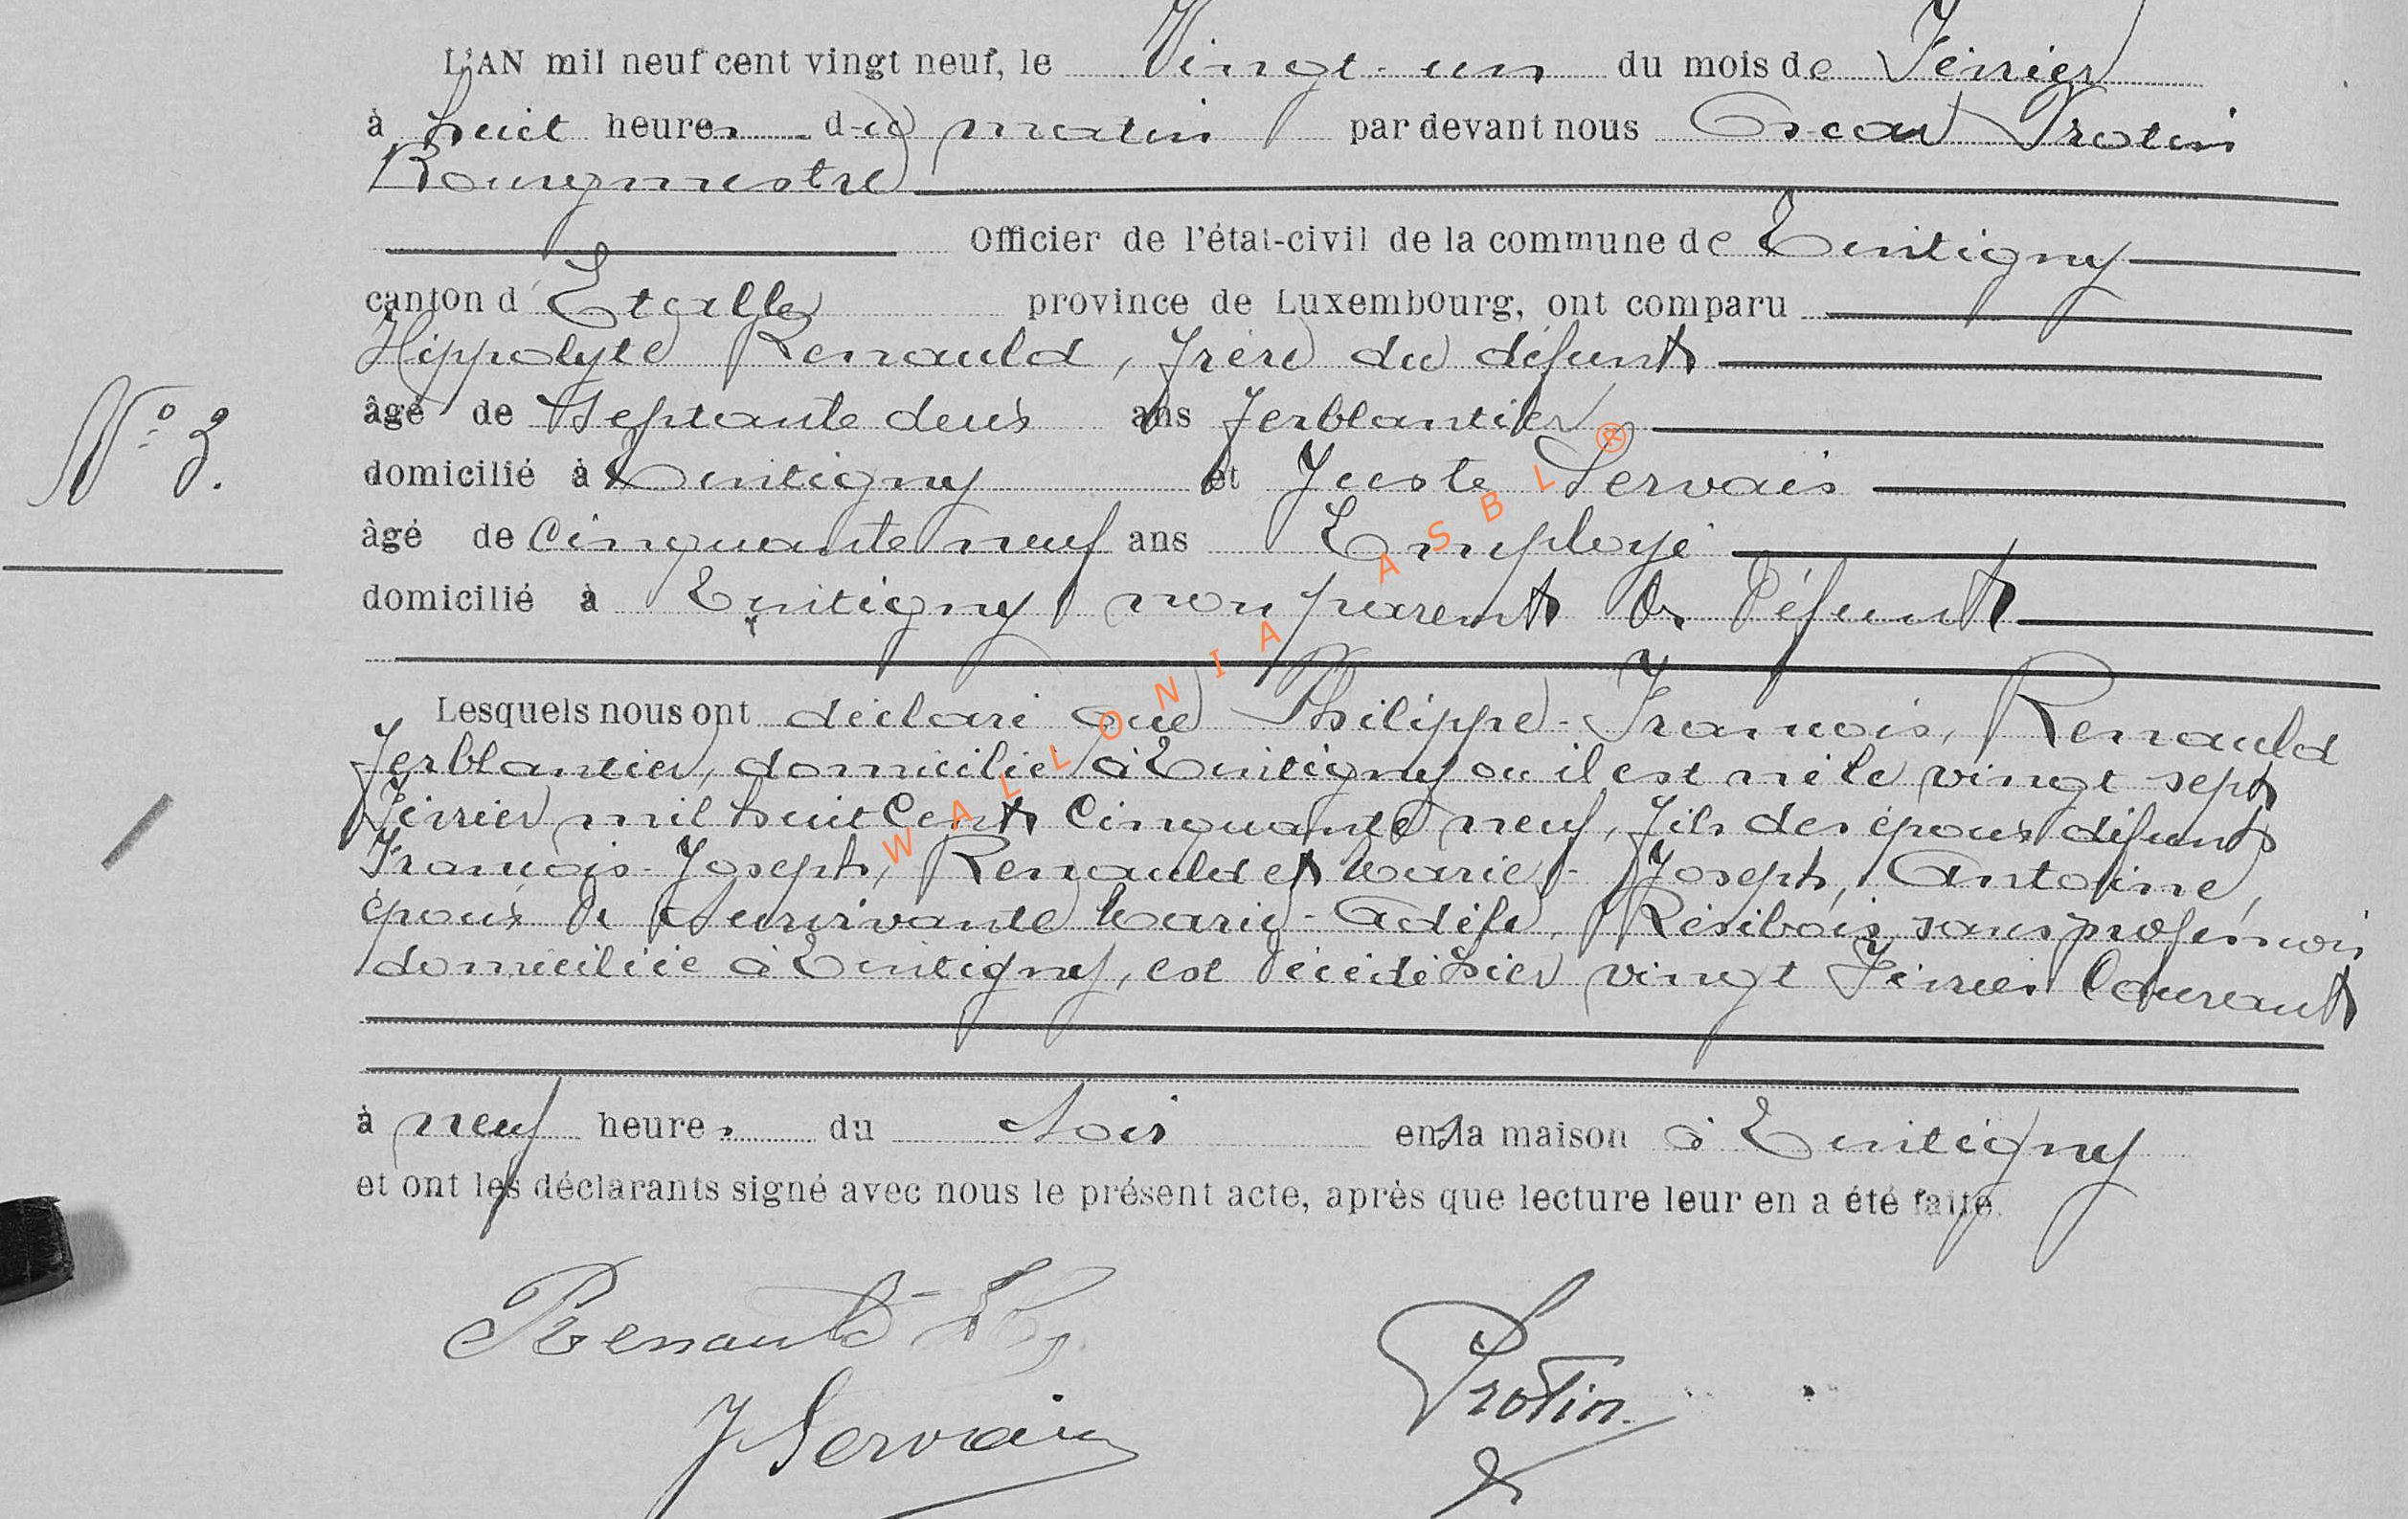 L'AN mil neuf cent vingt neuf, le Vingt-un du mois de Février
à huit heures du matin par devant nous Oscar Protin
Bourgmestre
Officier de l'état-civil de la commune de Tintigny
canton d'Etalle province de Luxembourg, ont comparu
Hippolyte Renauld, frère du défunt
âgé de septante deux ans ferblantier
N° 3.
domicilié à Tintigny et Juste Servais
âgé de cinquante neuf ans Employé
domicilié à Tintigny non parent du défunt
Lesquels nous ont déclaré que Philippe-François, Renauld
ferblantier, domicilié à Tintigny ou il est né le vingt sept
Février mil huit Cent Cinquante neuf, fils des époux défunts
François-Joseph, Renauld et Marie-Joseph, Antoine,
époux de survivante Marie-Adèle, Résibois, sans profession
domiciliée à Tintigny, est décédé hier vingt Février Courant
à neuf heures du soir en sa maison à Tintigny
et ont les déclarants signé avec nous le présent acte, après que lecture leur en a été faite.
Renauld
J Servais
Protin
WALLONIA ASBL ®